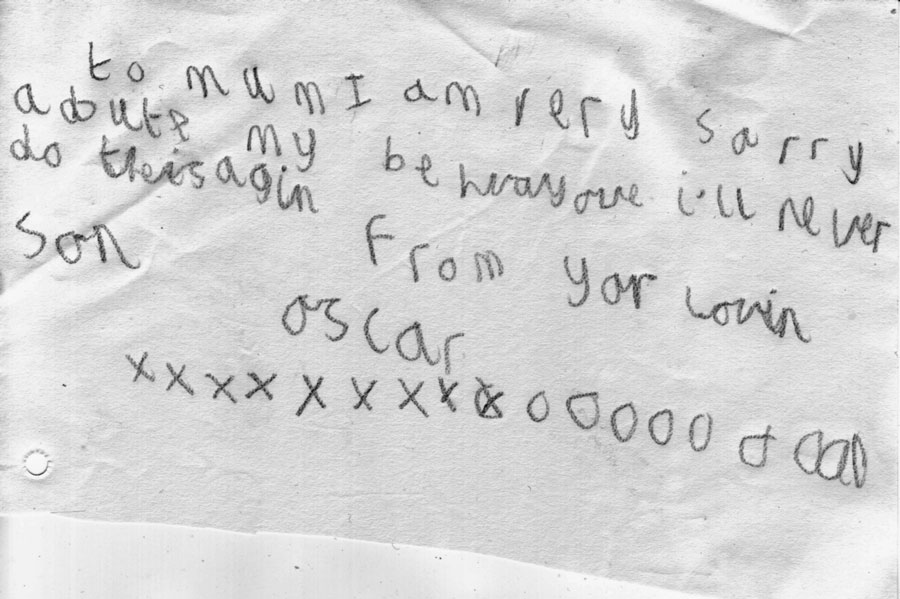 to mum I am very sarry
adoute my behavayoue i'll never
do theis agin
From yor lovin
son
oscar
xxxx x x x x x o o o o o o o o o o